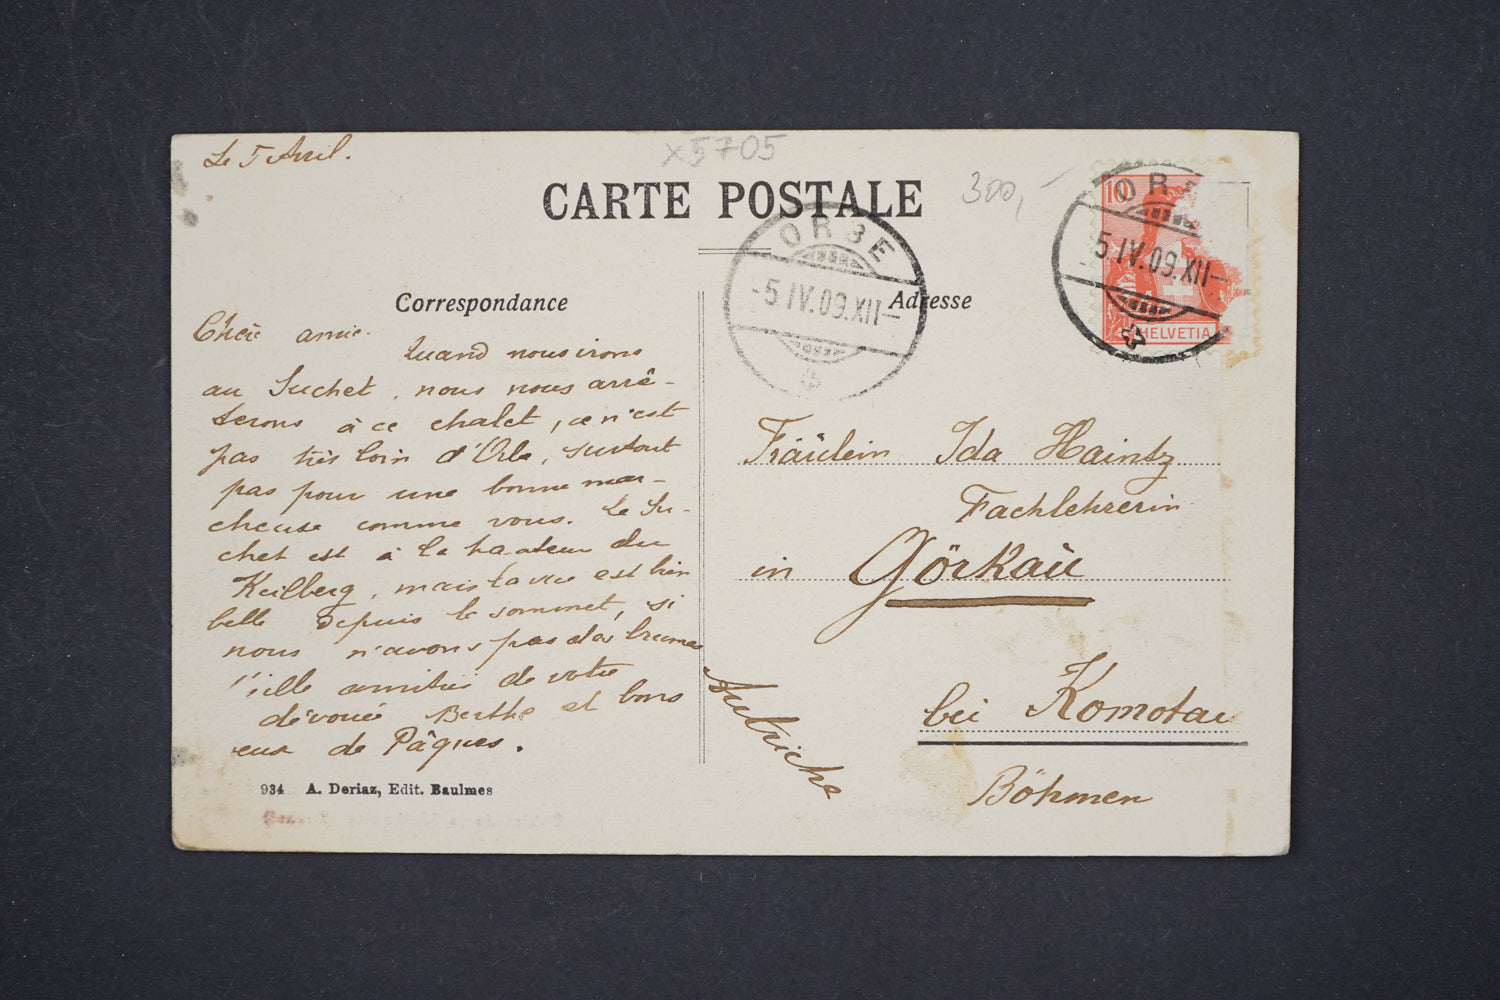 Le 5 Avril.
X5705
300,-
CARTE POSTALE
ORBE
-5.IV.09.XII-
ORBE
-5.IV.09.XII-
10
HELVETIA
Correspondance
Adresse
Chère amie.
Quand nous irons
au Suchet, nous nous arrê-
terons à ce chalet, ce n'est
pas très loin d'Orbe, surtout
pas pour une bonne mar-
cheuse comme vous. Le Su-
chet est à la hauteur du
Keilberg, mais la vue est bien
belle depuis le sommet, si
nous n'avons pas des brumes
Mille amitiés de votre
dévouée Berthe et bons
vœux de Pâques.
934 A. Deriaz, Edit. Baulmes
Fräulein Ida Haintz
Fachlehrerin
in Görkau
bei Komotau
Böhmen
Autriche